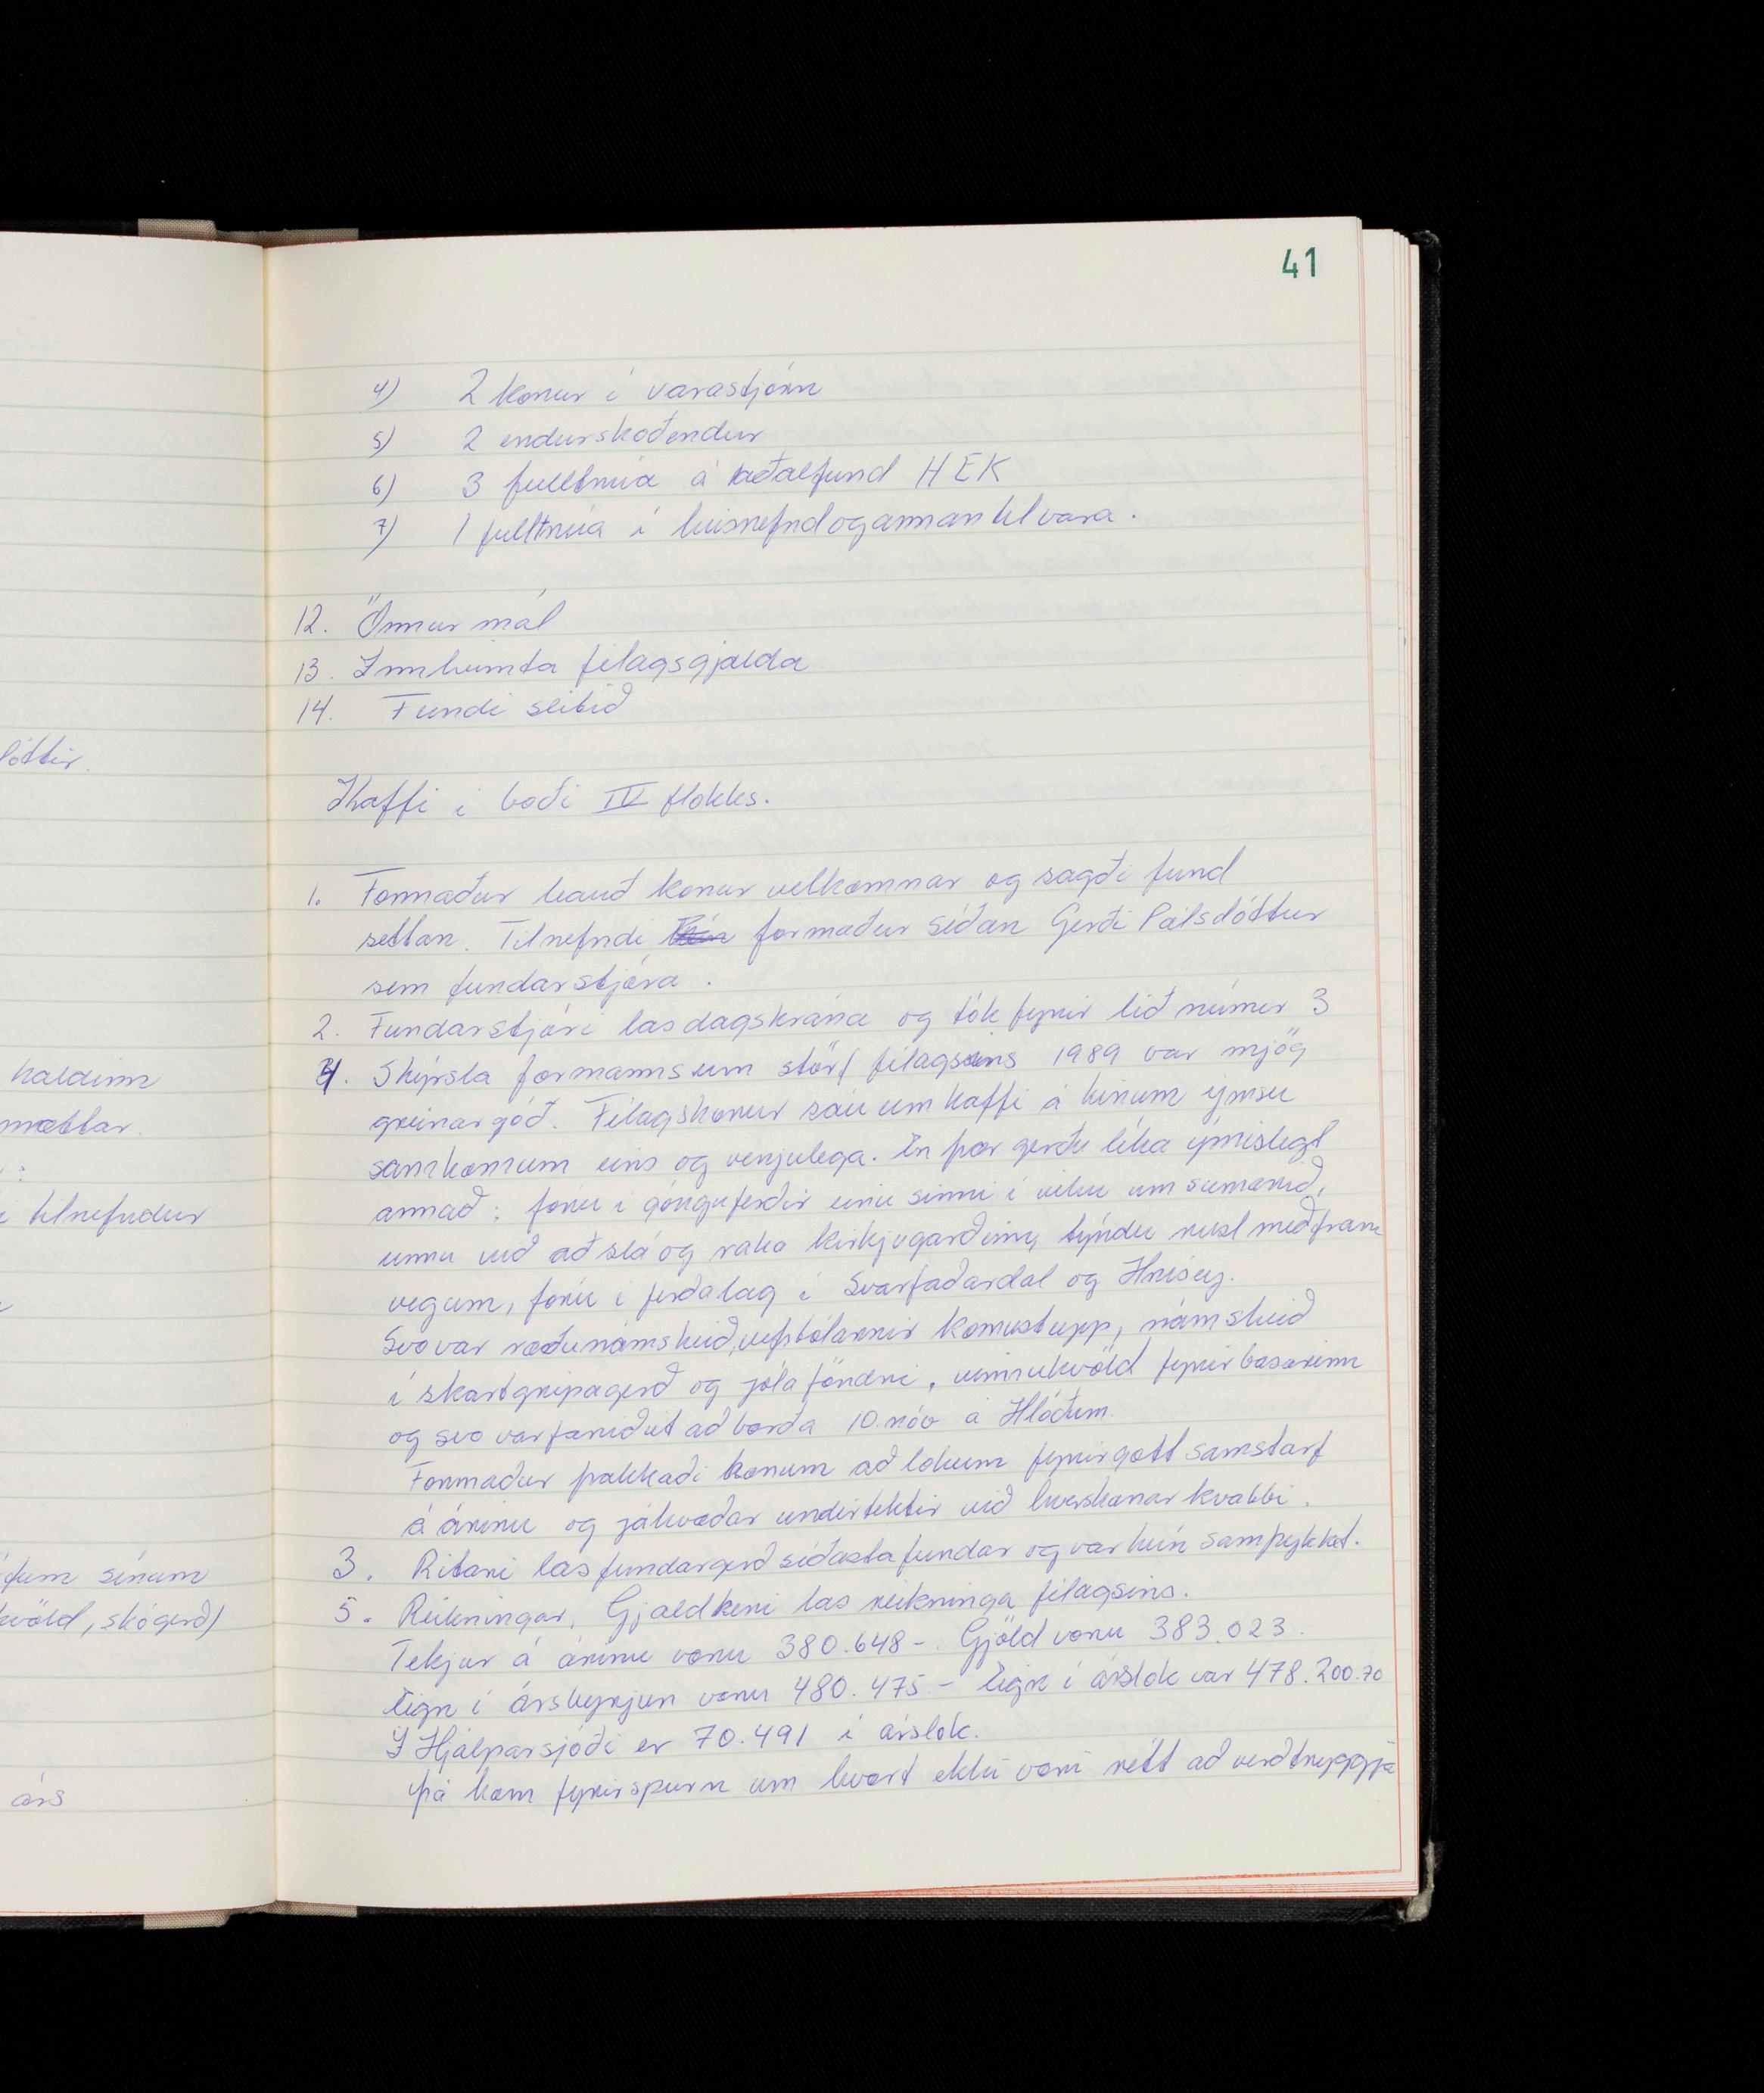 41
4) 2 konur í varastjórn
5) 2 endurskoðendur
6) 3 fulltrúa á aðalfund HEK
7) 1 fulltrúa í húsnefnd og annan til vara.
12. Önnur mál
13. Innheimta félagsgjalda
14. Fundi slitið
Kaffi í boði IV flokks.
1. Formaður bauð konur velkomnar og sagði fund
settan. Tilnefndi formaður síðan Gerði Pálsdóttur
sem fundarstjóra.
2. Fundarstjóri las dagskrána og tók fyrir lið númer 3
4. Skýrsla formanns um störf félagsins 1989 var mjög
greinargóð. Félagskonur sáu um kaffi á hinum ýmsu
samkomum eins og venjulega. En þær gerðu líka ýmislegt
annað: fóru í gönguferðir einu sinni í viku um sumarið,
unnu við að slá og raka kirkjugarðinn, týndu rusl meðfram
vegum, fóru í ferðalag í Svarfaðardal og Hrísey.
Svo var ræðunámskeið, vefstólarnir komust upp, námskeið
í skartgripagerð og jólaföndri, vinnukvöld fyrir basarinn
og svo var farið út að borða 10. nóv á Hlóðum.
Formaður þakkaði konum að lokum fyrir gott samstarf
á árinu og jákvæðar undirtektir við hverskonar kvabbi.
3. Ritari las fundargerð síðasta fundar og var hún samþykkt.
5. Reikningar, Gjaldkeri las reikninga félagsins.
Tekjur á árinu voru 380.648-. Gjöld voru 383.023.
Eign í ársbyrjun voru 480.475.- Eign í árslok var 478.200.70
Í Hjálparsjóði er 70.491 í árslok.
Þá kom fyrirspurn um hvort ekki væri rétt að verðtryggja
lóttir.
haldinn
mættar.
tilnefndur
sínum
kvöld, skógerð)
árs